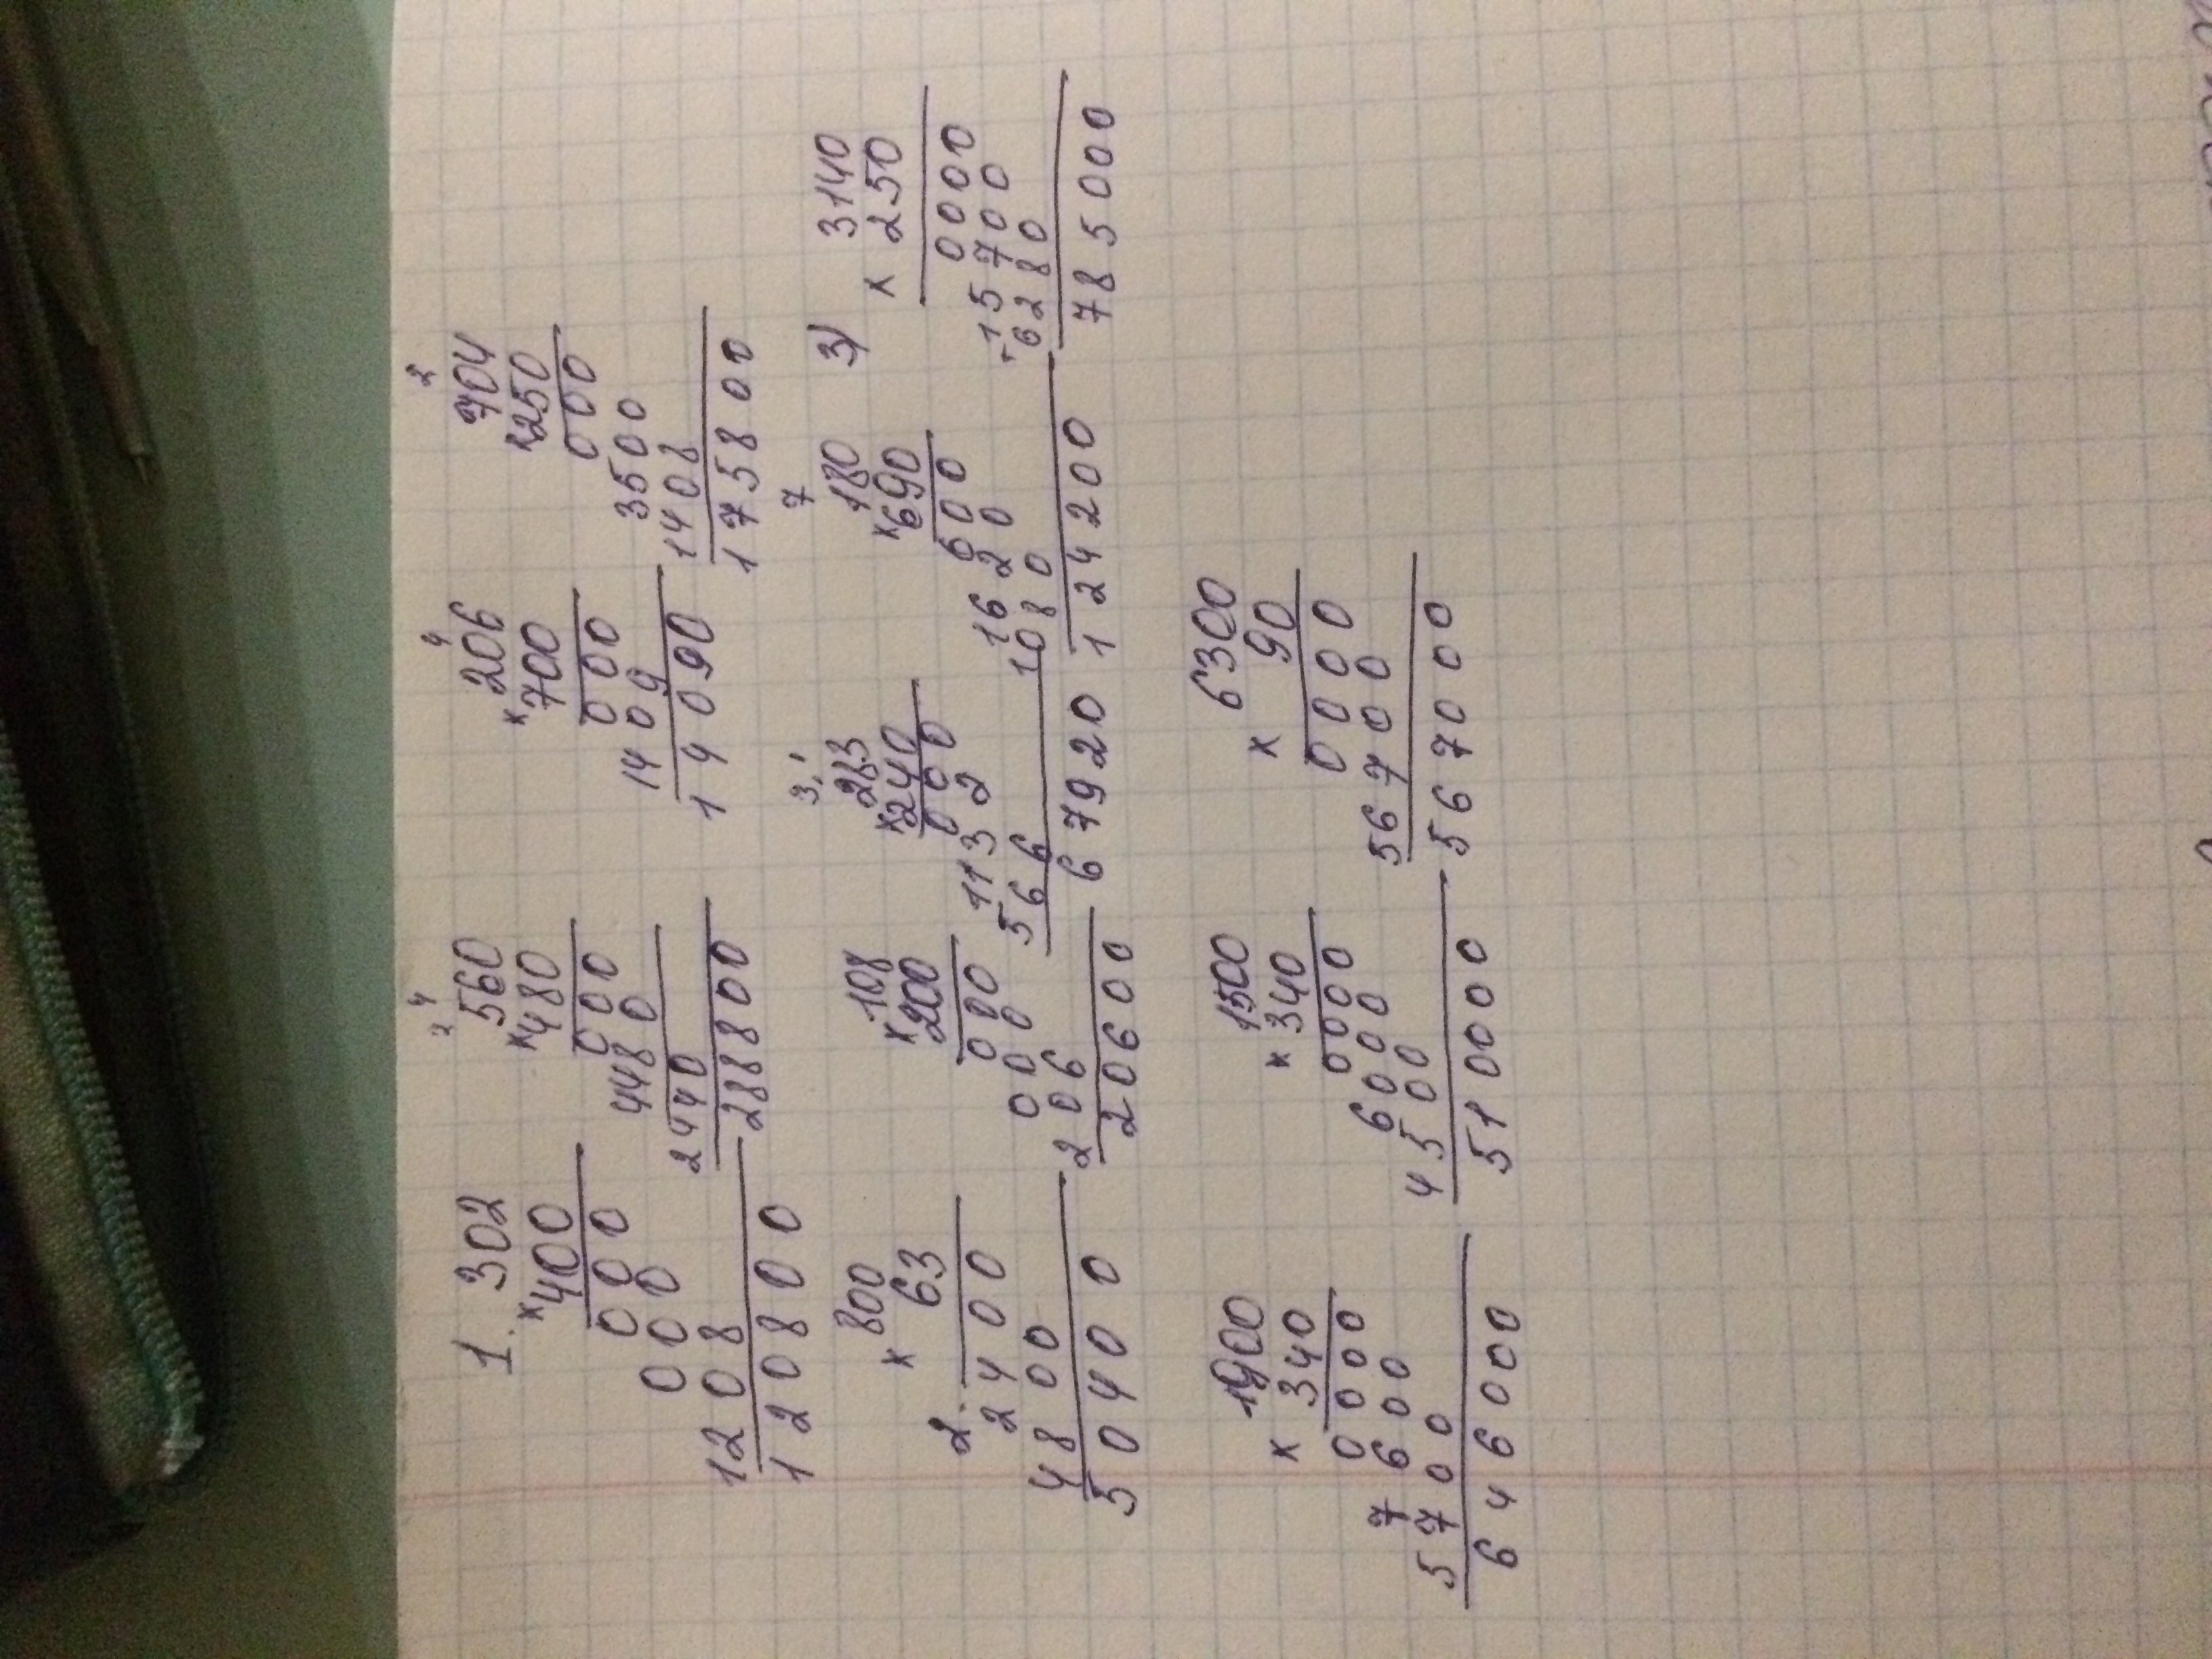 1. 302
×400
000
000
1208
120800
2 4
560
×480
000
4480
2440
288800
4
206
×700
000
1409
14090
2 2
704
×250
000
3500
1408
175800
2.
800
× 63
2400
4800
50400
108
×200
000
000
206
20600
3 1
283
×240
000
1132
566
67920
7
180
×690
000
1620
1080
124200
3)
3140
× 250
0000
15700
6280
785000
1900
× 340
0000
7600
5700
646000
1500
× 340
0000
6000
4500
510000
6300
× 90
0000
56700
567000